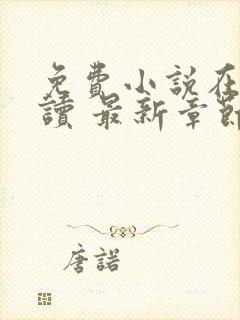 免費小説在
讀 最新章節
唐諾